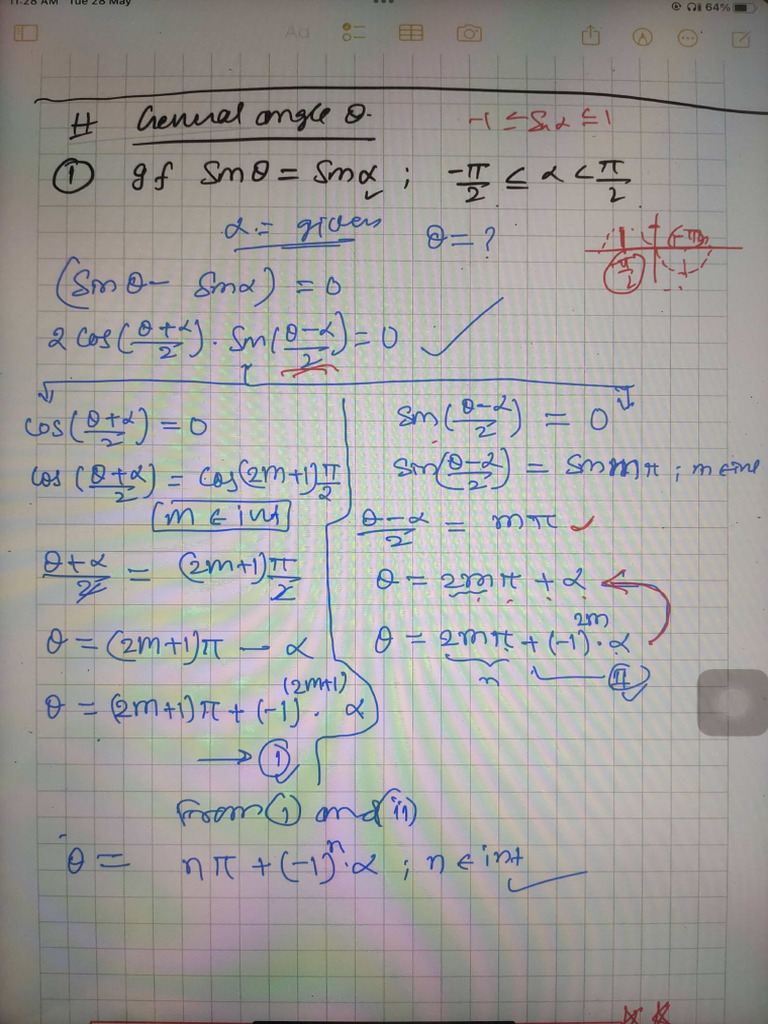 11:28 AM Tue 28 May
64%
Aa
# General angle θ. -1 ≤ Sinα ≤ 1
① If Sinθ = Sinα ; -π/2 ≤ α < π/2
α = given θ = ?
(Sinθ - Sinα) = 0
2 cos(θ+α/2) · Sin(θ-α/2) = 0
cos(θ+α/2) = 0
cos(θ+α/2) = cos(2m+1)π/2
m ∈ int
θ+α/2 = (2m+1)π/2
θ = (2m+1)π - α
θ = (2m+1)π + (-1)^(2m+1) · α
→ ①
Sin(θ-α/2) = 0
Sin(θ-α/2) = Sin mπ ; m ∈ int
θ-α/2 = mπ
θ = 2mπ + α
θ = 2mπ + (-1)^2m · α
n
ⓘⓘ
From ① and (ii)
θ = nπ + (-1)^n · α ; n ∈ int